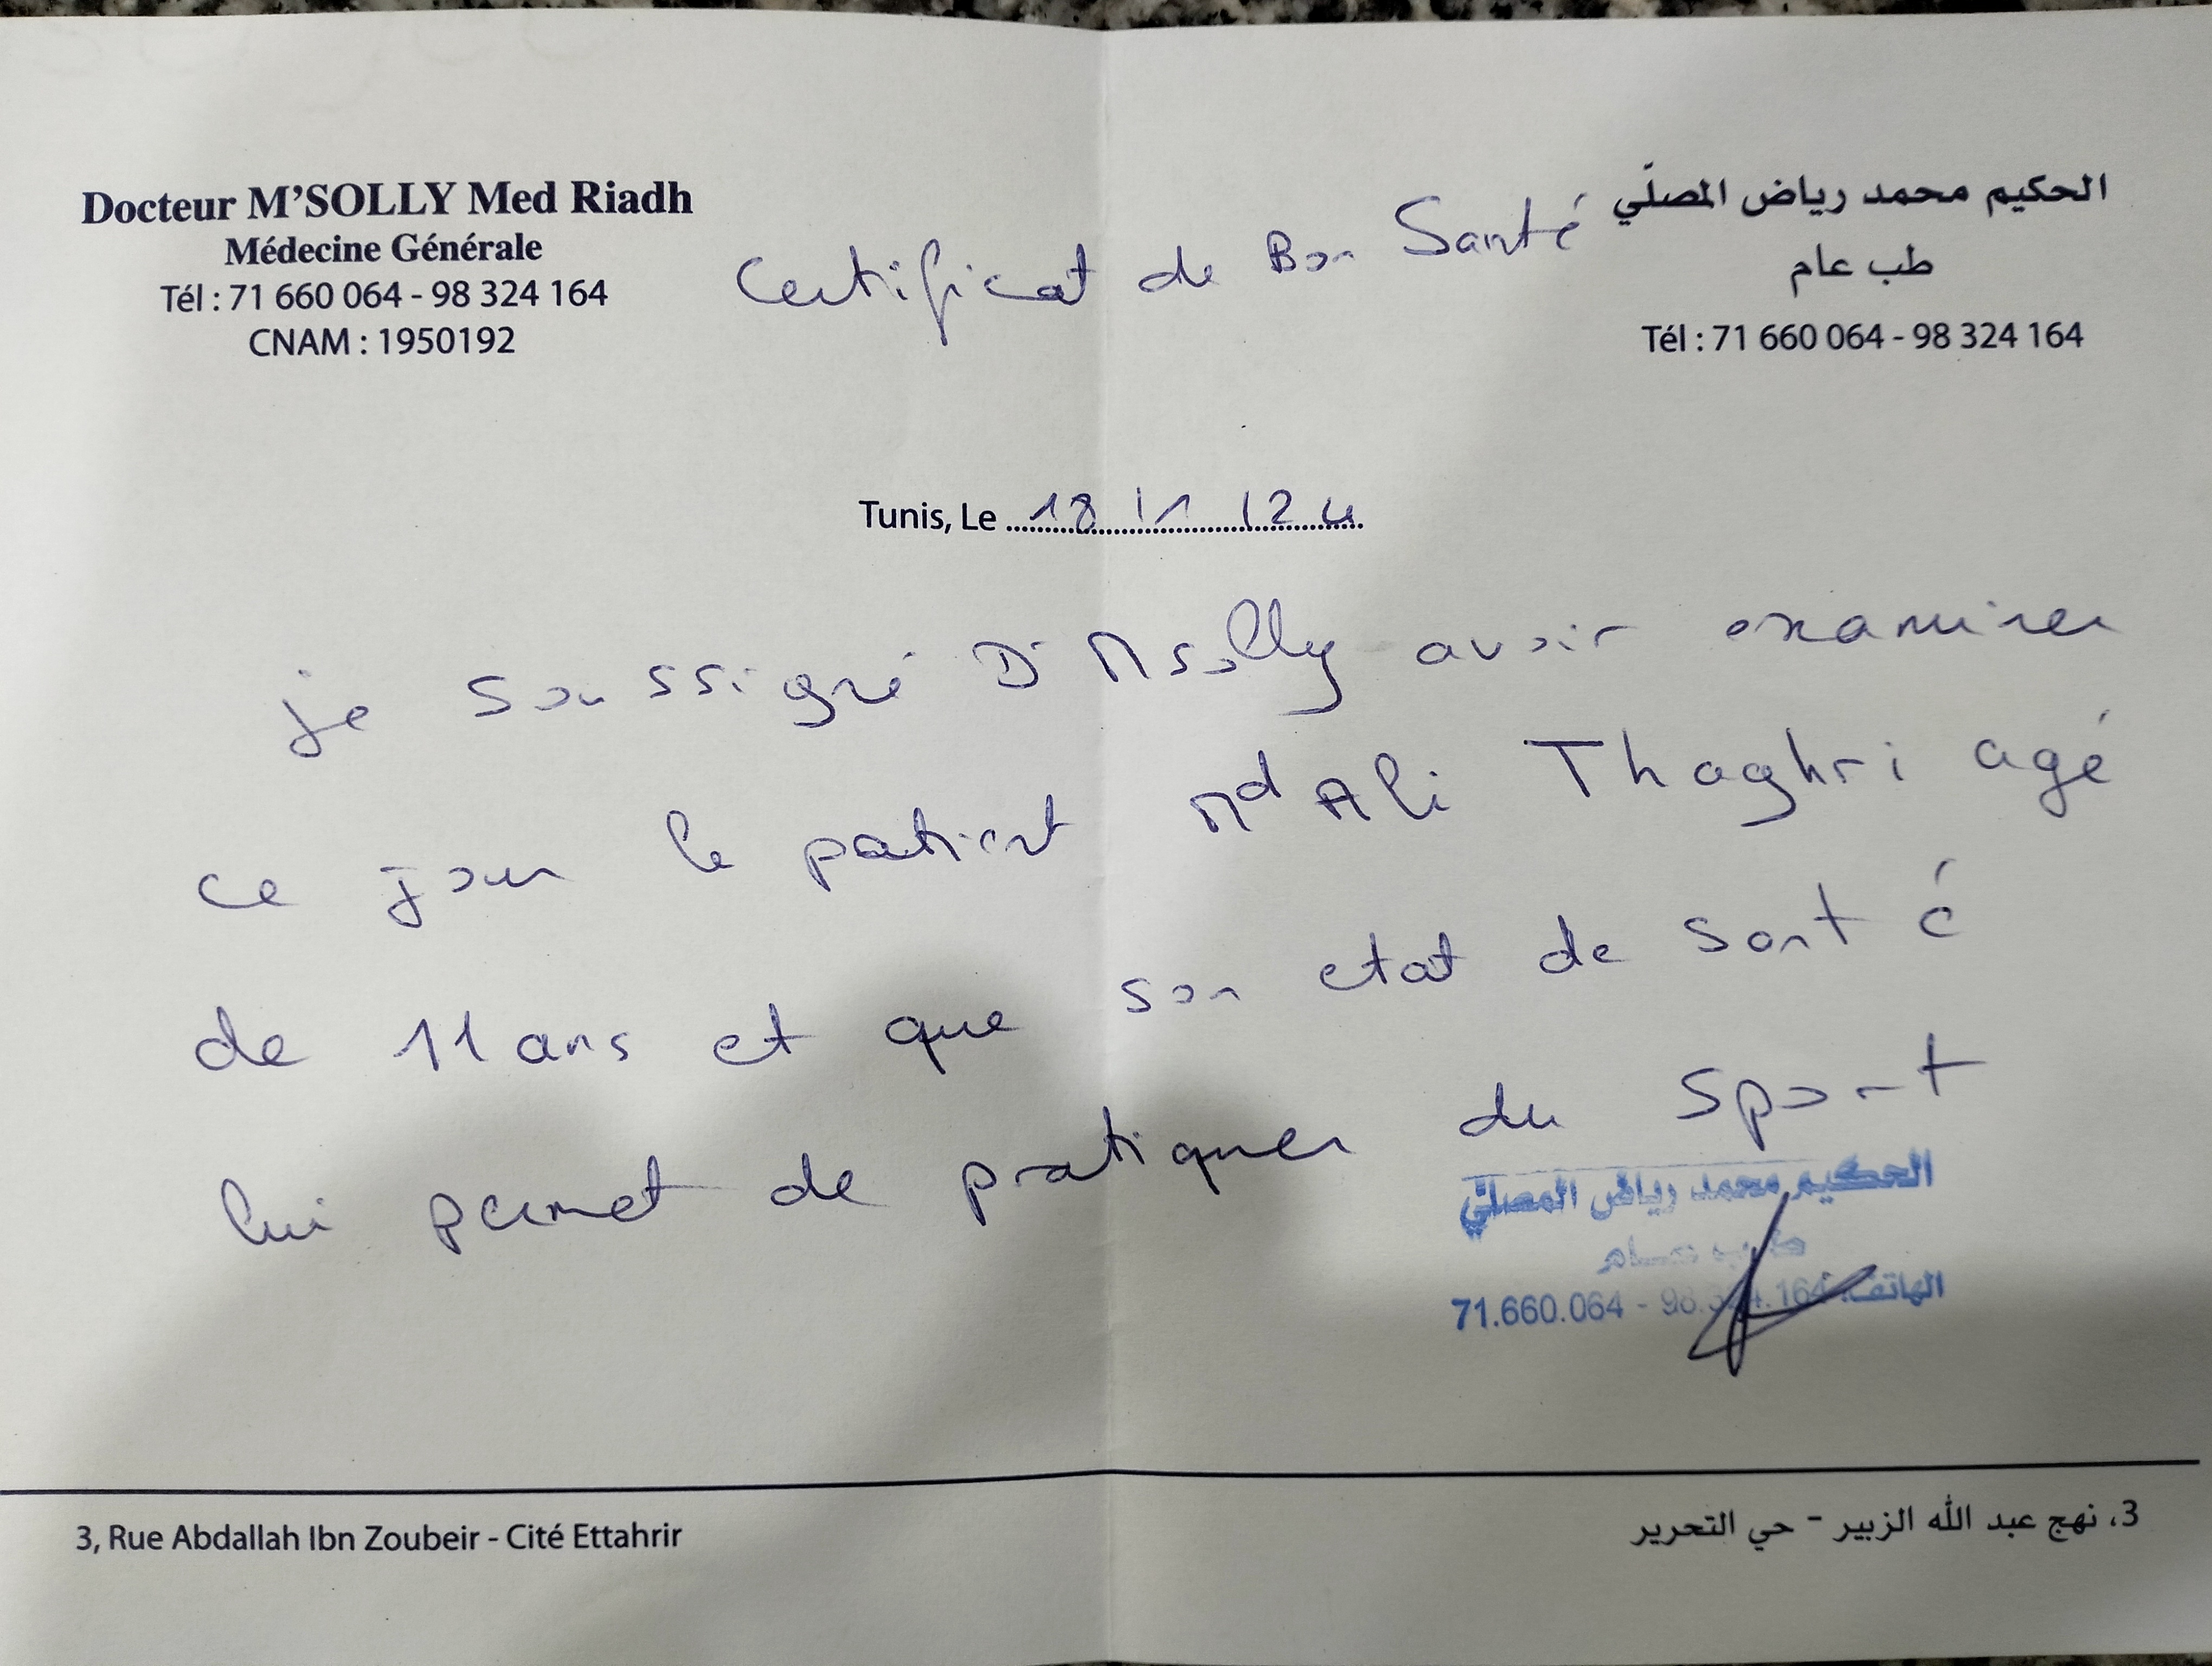 Docteur M'SOLLY Med Riadh
Médecine Générale
Tél : 71 660 064 - 98 324 164
CNAM : 1950192
الحكيم محمد رياض المصلّي
طب عام
Tél : 71 660 064 - 98 324 164
Certificat de Bon Santé
Tunis, Le 18 / 1 / 24
je soussigné Dr Msolly avoir examiner
ce jour le patient Md Ali Thaghri agé
de 11 ans et que son etat de santé
lui permet de pratiquer du sport
الحكيم محمد رياض المصلّي
طب عام
الهاتف: 71.660.064 - 98.324.164
3, Rue Abdallah Ibn Zoubeir - Cité Ettahrir
3، نهج عبد الله الزبير - حي التحرير